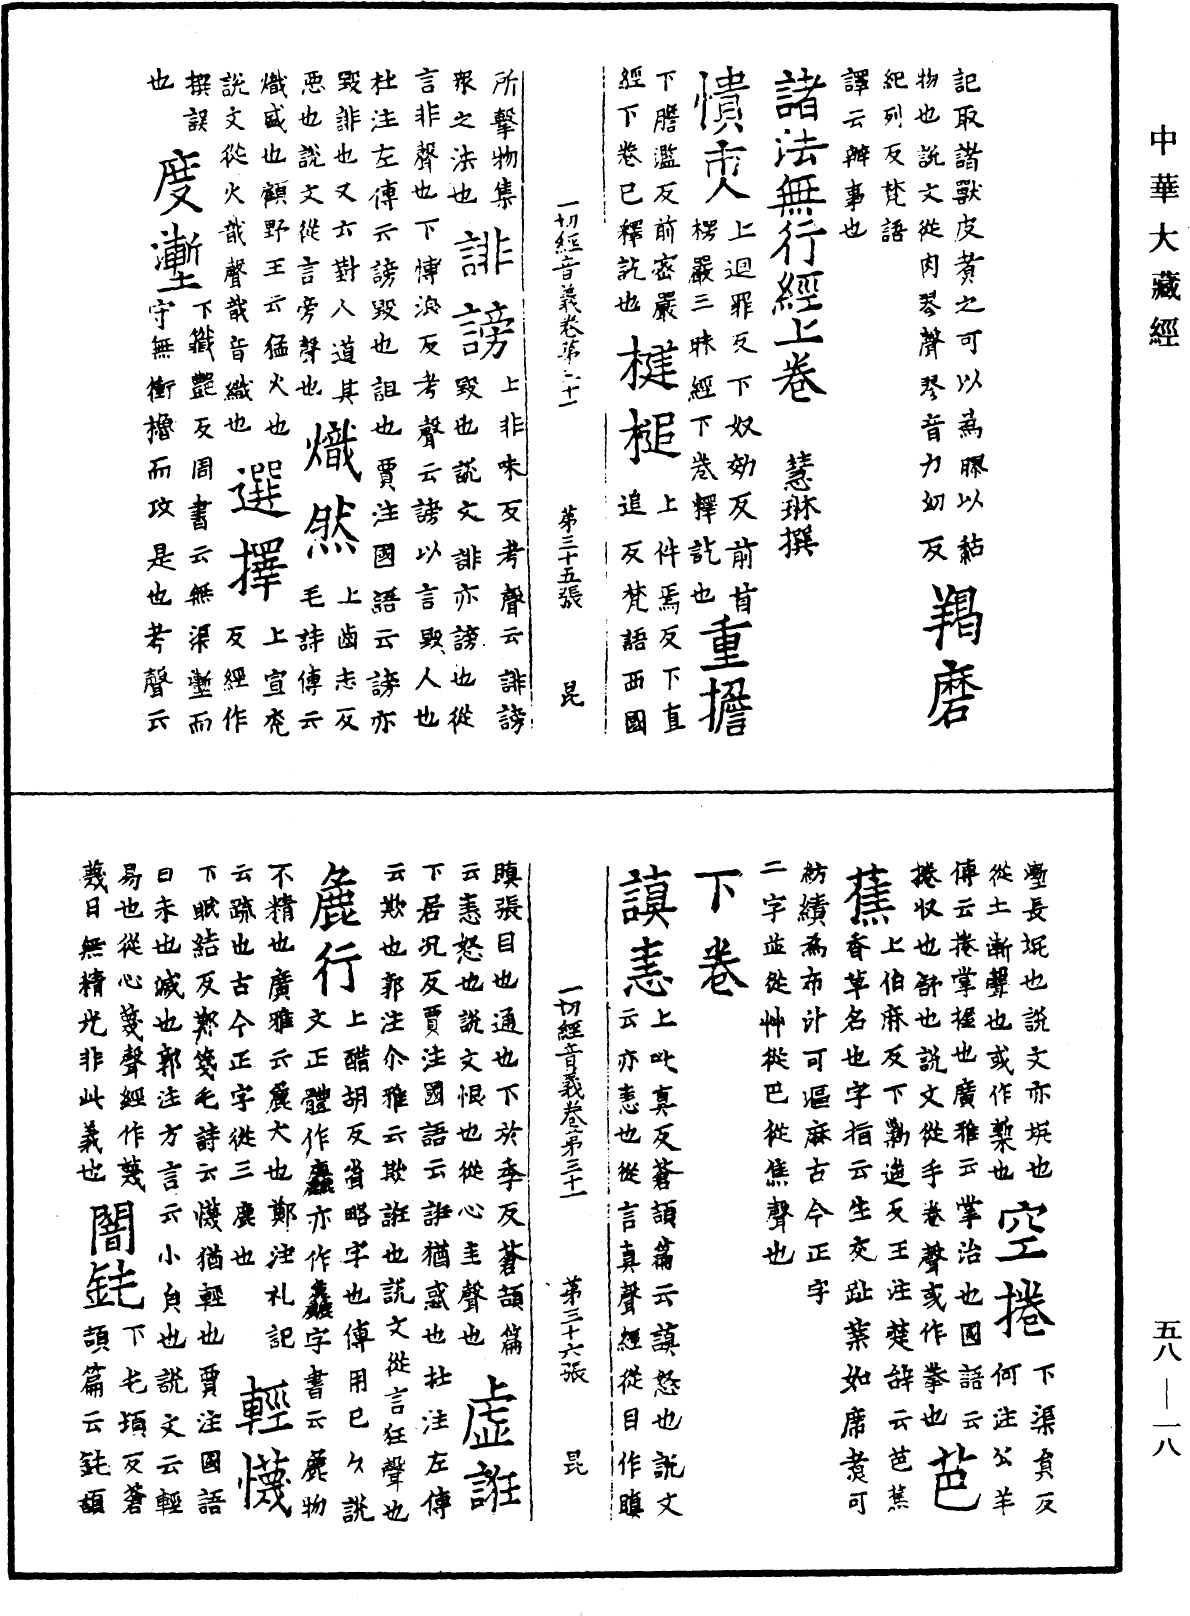 中華大藏經
記取諸獸皮煮之可以為膠以黏
物也說文從肉琴聲琴音力幼反
羯磨
紀列反梵語
譯云辦事也
諸法無行經上卷 慧琳撰
憒夾
上迴罪反下奴効反前首
楞嚴三昧經下卷釋訖也
重擔
下膽濫反前密嚴
經下卷已釋訖也
楗槌
上件焉反下直
追反梵語西國
一切經音義卷第三十一 第三十五張 昆
所擊物集
眾之法也
誹謗
上非味反考聲云誹謗
毀也說文誹亦謗也從
言非聲也下愽浪反考聲云謗以言毀人也
杜注左傳云謗毀也詛也賈注國語云謗亦
毀誹也又云對人道其
惡也說文從言旁聲也
熾然
上齒志反
毛詩傳云
熾盛也顧野王云猛火也
說文從火戠聲戠音織也
選擇
上宣兖
反經作
撰誤
也
度壍
下籤豔反周書云無渠壍而
守無衝櫓而攻是也考聲云
壍長坑也說文亦坑也
從土漸聲也或作槧也
空捲
下渠員反
何注公羊
傳云捲掌握也廣雅云掌治也國語云
捲收也舒也說文從手卷聲或作拳也
芭
蕉
上伯麻反下勦遥反王注楚辭云芭蕉
香草名也字指云生交趾葉如席煮可
紡績為布汁可漚麻古今正字
二字並從艸從巴從焦聲也
下卷
謓恚
上叱真反蒼頡篇云謓怒也說文
云亦恚也從言真聲經從目作瞋
一切經音義卷第三十一 第三十六張 昆
瞋張目也通也下於季反蒼頡篇
云恚怒也說文恨也從心圭聲也
虛誑
下居况反賈注國語云誑猶惑也杜注左傳
云欺也郭注尒雅云欺誑也說文從言狂聲也
麁行
上醋胡反省略字也傳用已久說
文正體作麤亦作麄字書云麁物
不精也廣雅云麁大也鄭注礼記
云疏也古今正字從三鹿也
輕懱
下眠結反鄭箋毛詩云懱猶輕也賈注國語
曰末也滅也郭注方言云小皃也說文云輕
易也從心蔑聲經作蔑
蔑目無精光非此義也
闇鈍
下屯頓反蒼
頡篇云鈍頑
五八—一八